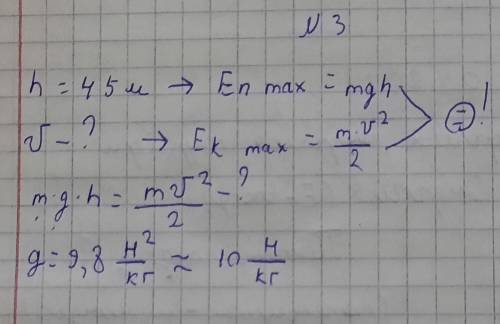 № 3
h = 45 м → Eп max = mgh
v - ? → Eк max = m·v²/2 = !
m·g·h = mv²/2 - ?
g = 9,8 Н²/кг ≈ 10 Н/кг